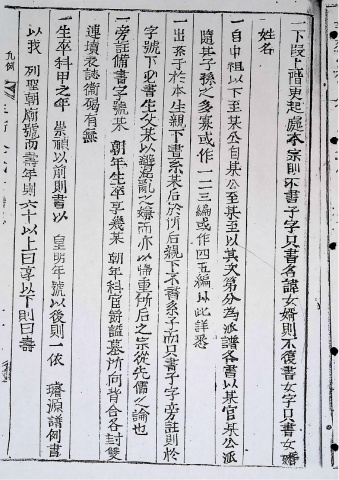 一下段上層更起處本宗則不書子字只書名諱女婿則不復書女字只書女婿
姓名
一自中祖以下至某公自某公至某至以其次第分為派譜各書以某官某公派
隨其子孫之多寡或作一二三編或作四五編以此詳悉
一出系子於本生親下書系某后於所后親下不書系子而只書子字旁註則於
字號下必書生父某以避混亂之嫌而亦以情重所后之宗從先儒之論也
一旁註備書字號某朝年生卒享幾某朝年科官爵諡墓所何背合各封雙
連墳表誌銜碣有無
一生卒科甲之年 崇禎以前則書以 皇明年號以後則一依 璿源譜例書
以我 列聖朝廟號而壽年則六十以上曰享以下則曰壽
凡例